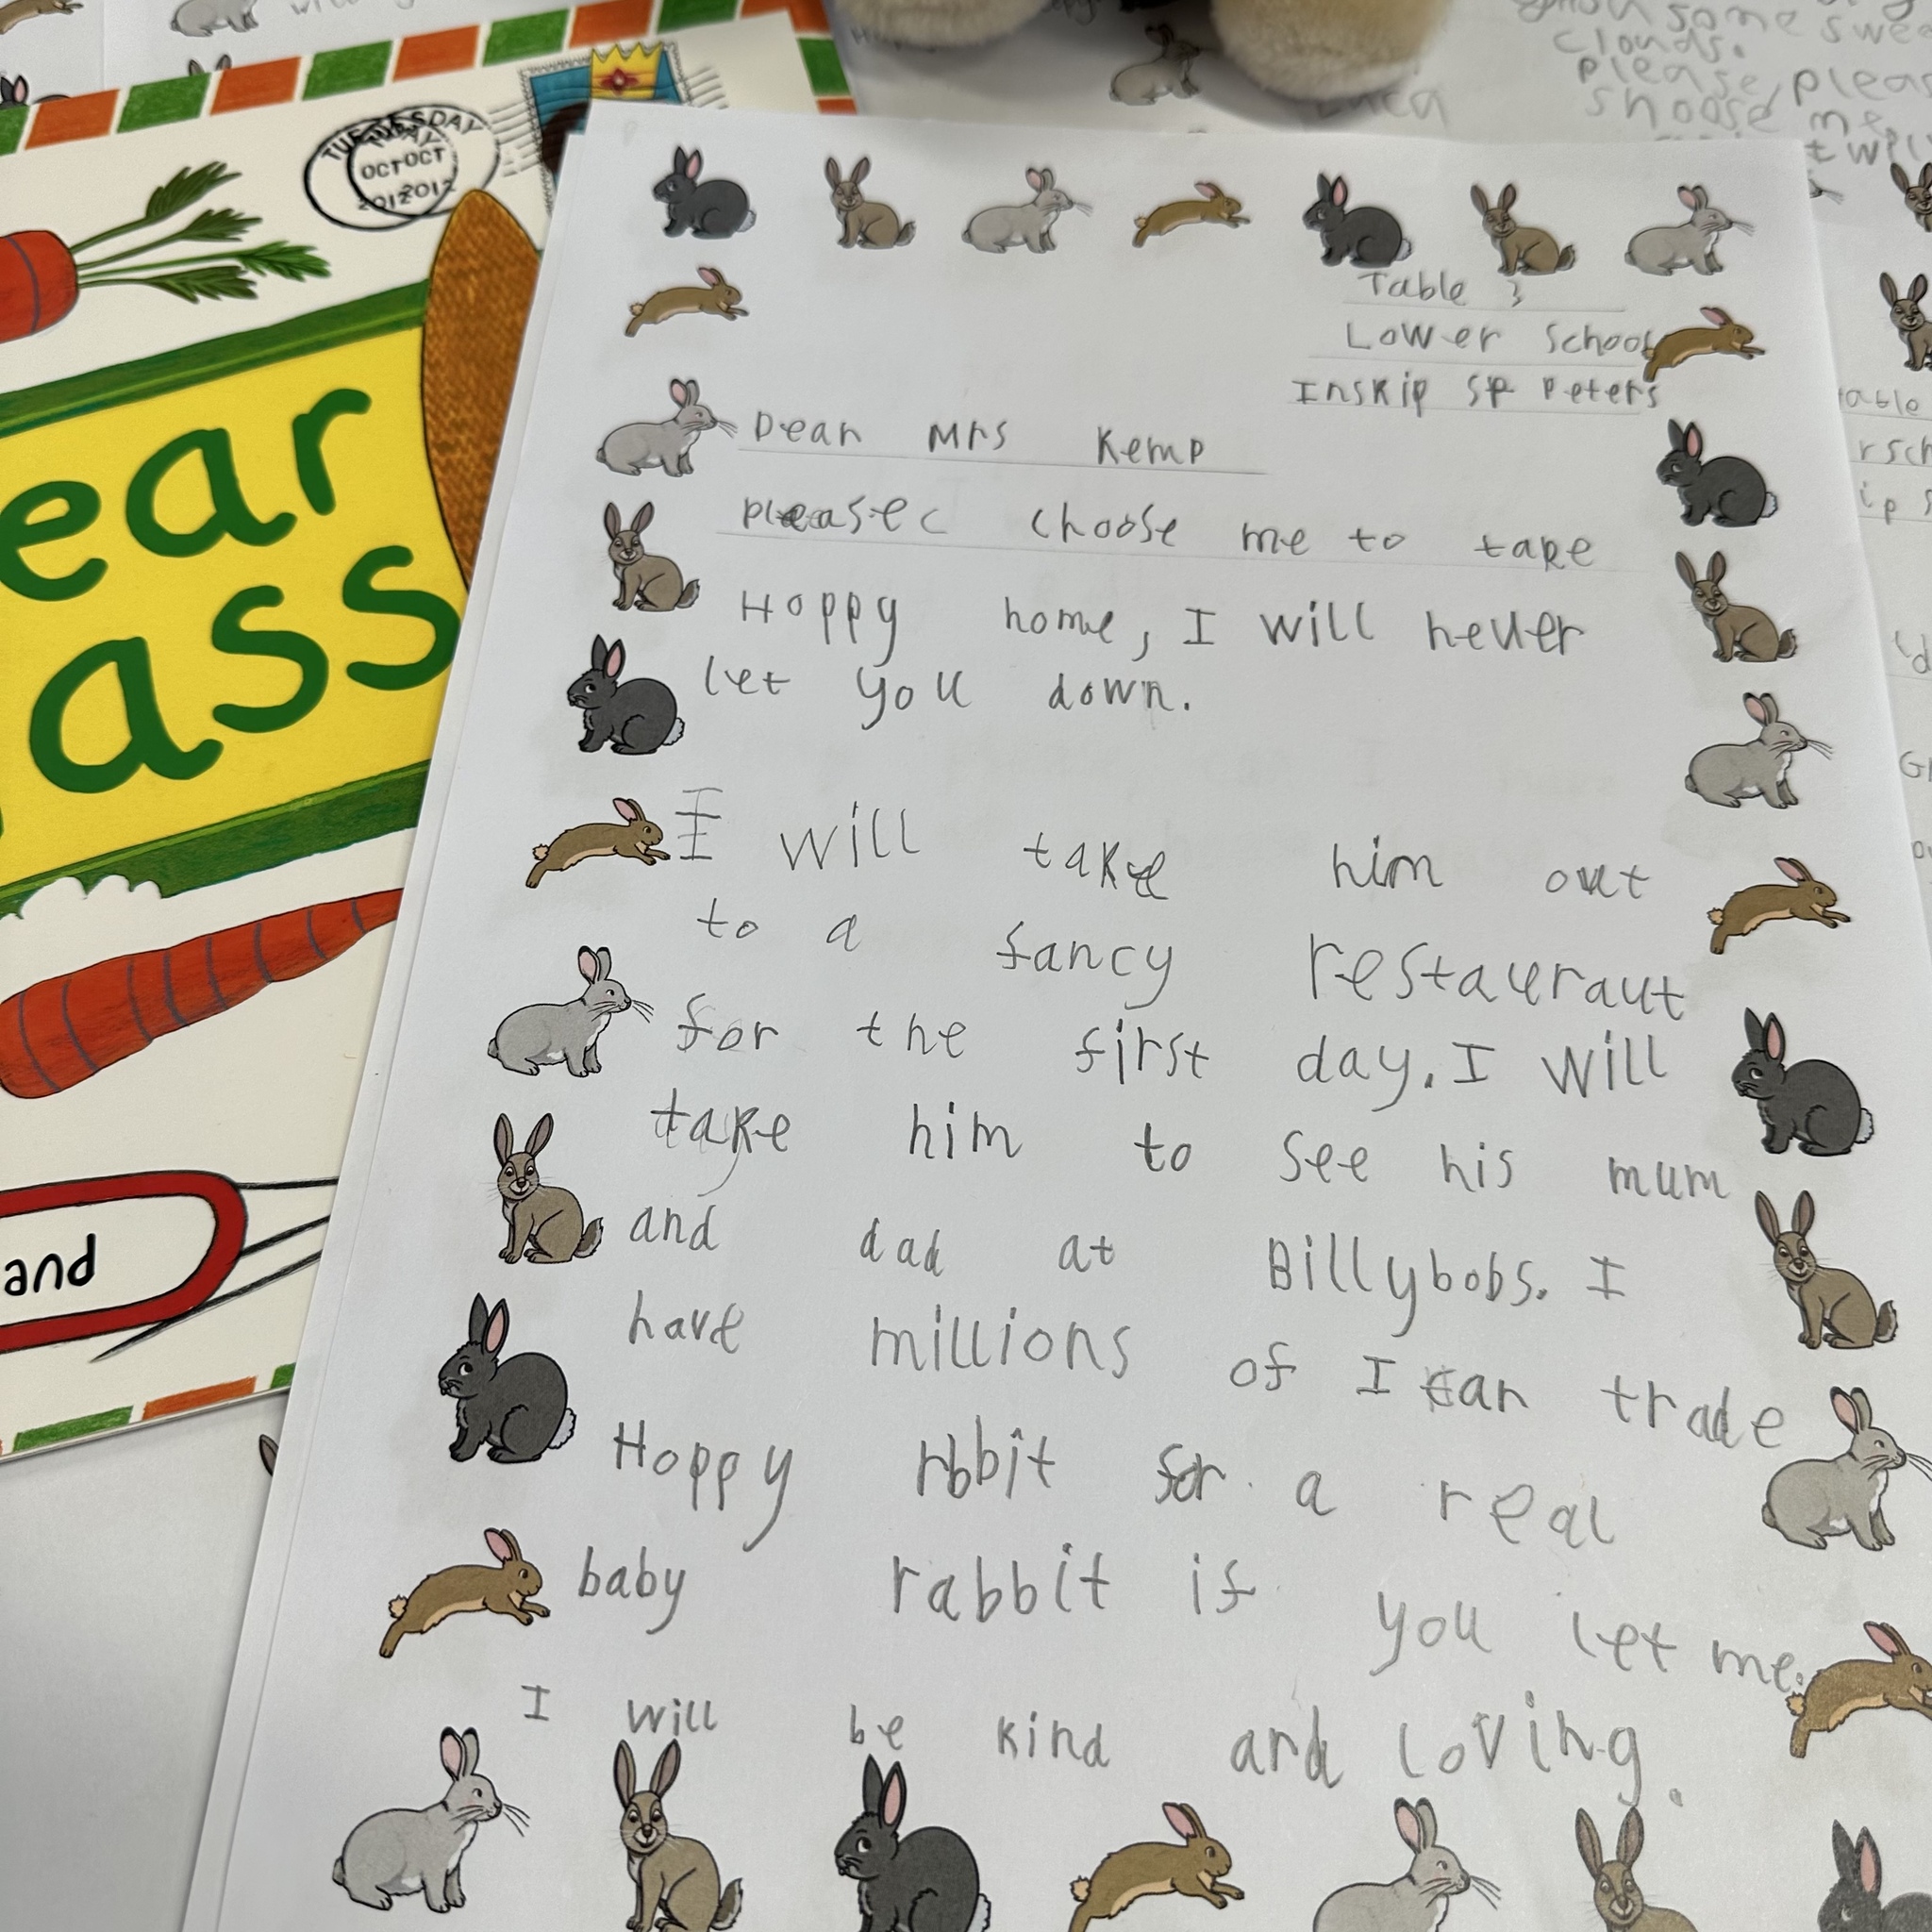 TUESDAY
OCT OCT
2012 2012
ear
ass
and
you some swee
clouds.
please pleas
shoose me
Table 3
Lower School
Inskip SP Peters
Dear Mrs Kemp
pleasec choose me to take
Hoppy home, I will never
let you down.
I will take him out
to a fancy restaueraut
for the first day. I will
take him to see his mum
and dad at Billybobs. I
have millions of I can trade
Hoppy rbbit for a real
baby rabbit if you let me.
I will be kind and loving.
able
rsch
ip s